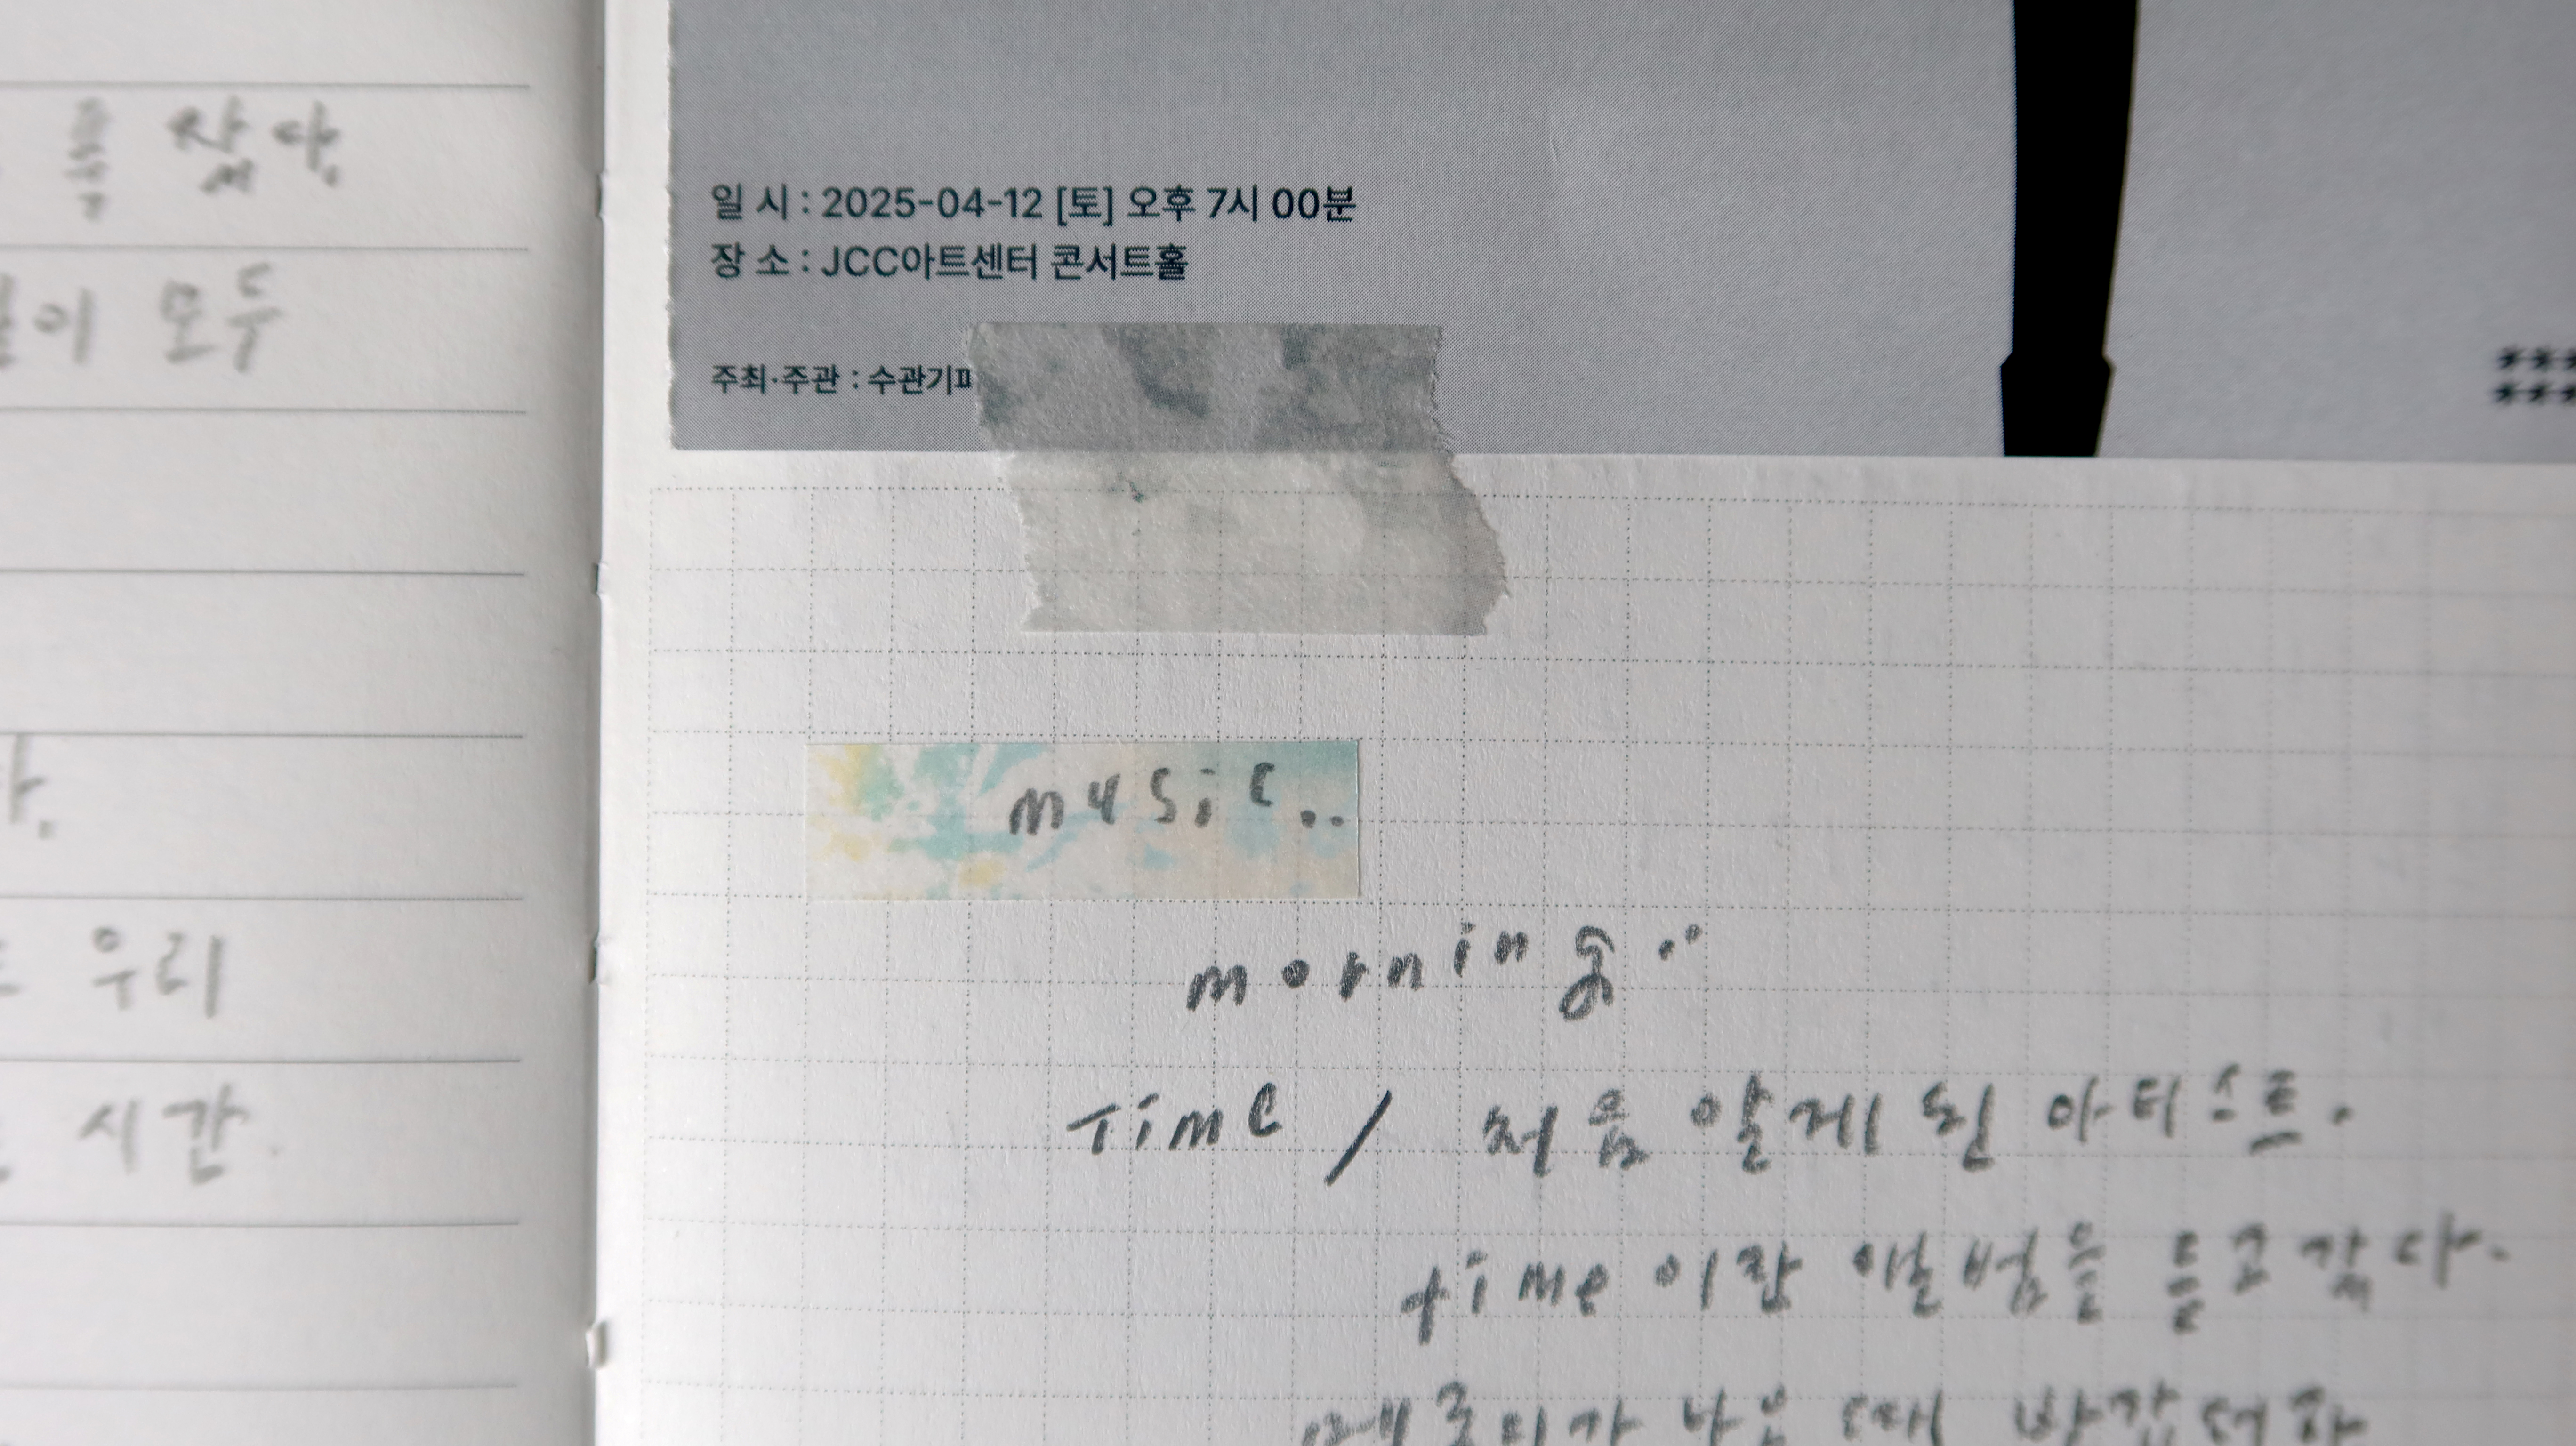 를 잤다.
이 모두
다.
우리
시간.
일 시 : 2025-04-12 [토] 오후 7시 00분
장 소 : JCC아트센터 콘서트홀
주최·주관 : 수관기피
music..
morning..
Time / 처음 알게 된 아티스트.
time 이란 앨범을 듣고갔다.
멜로디가 나올 때 반갑더라